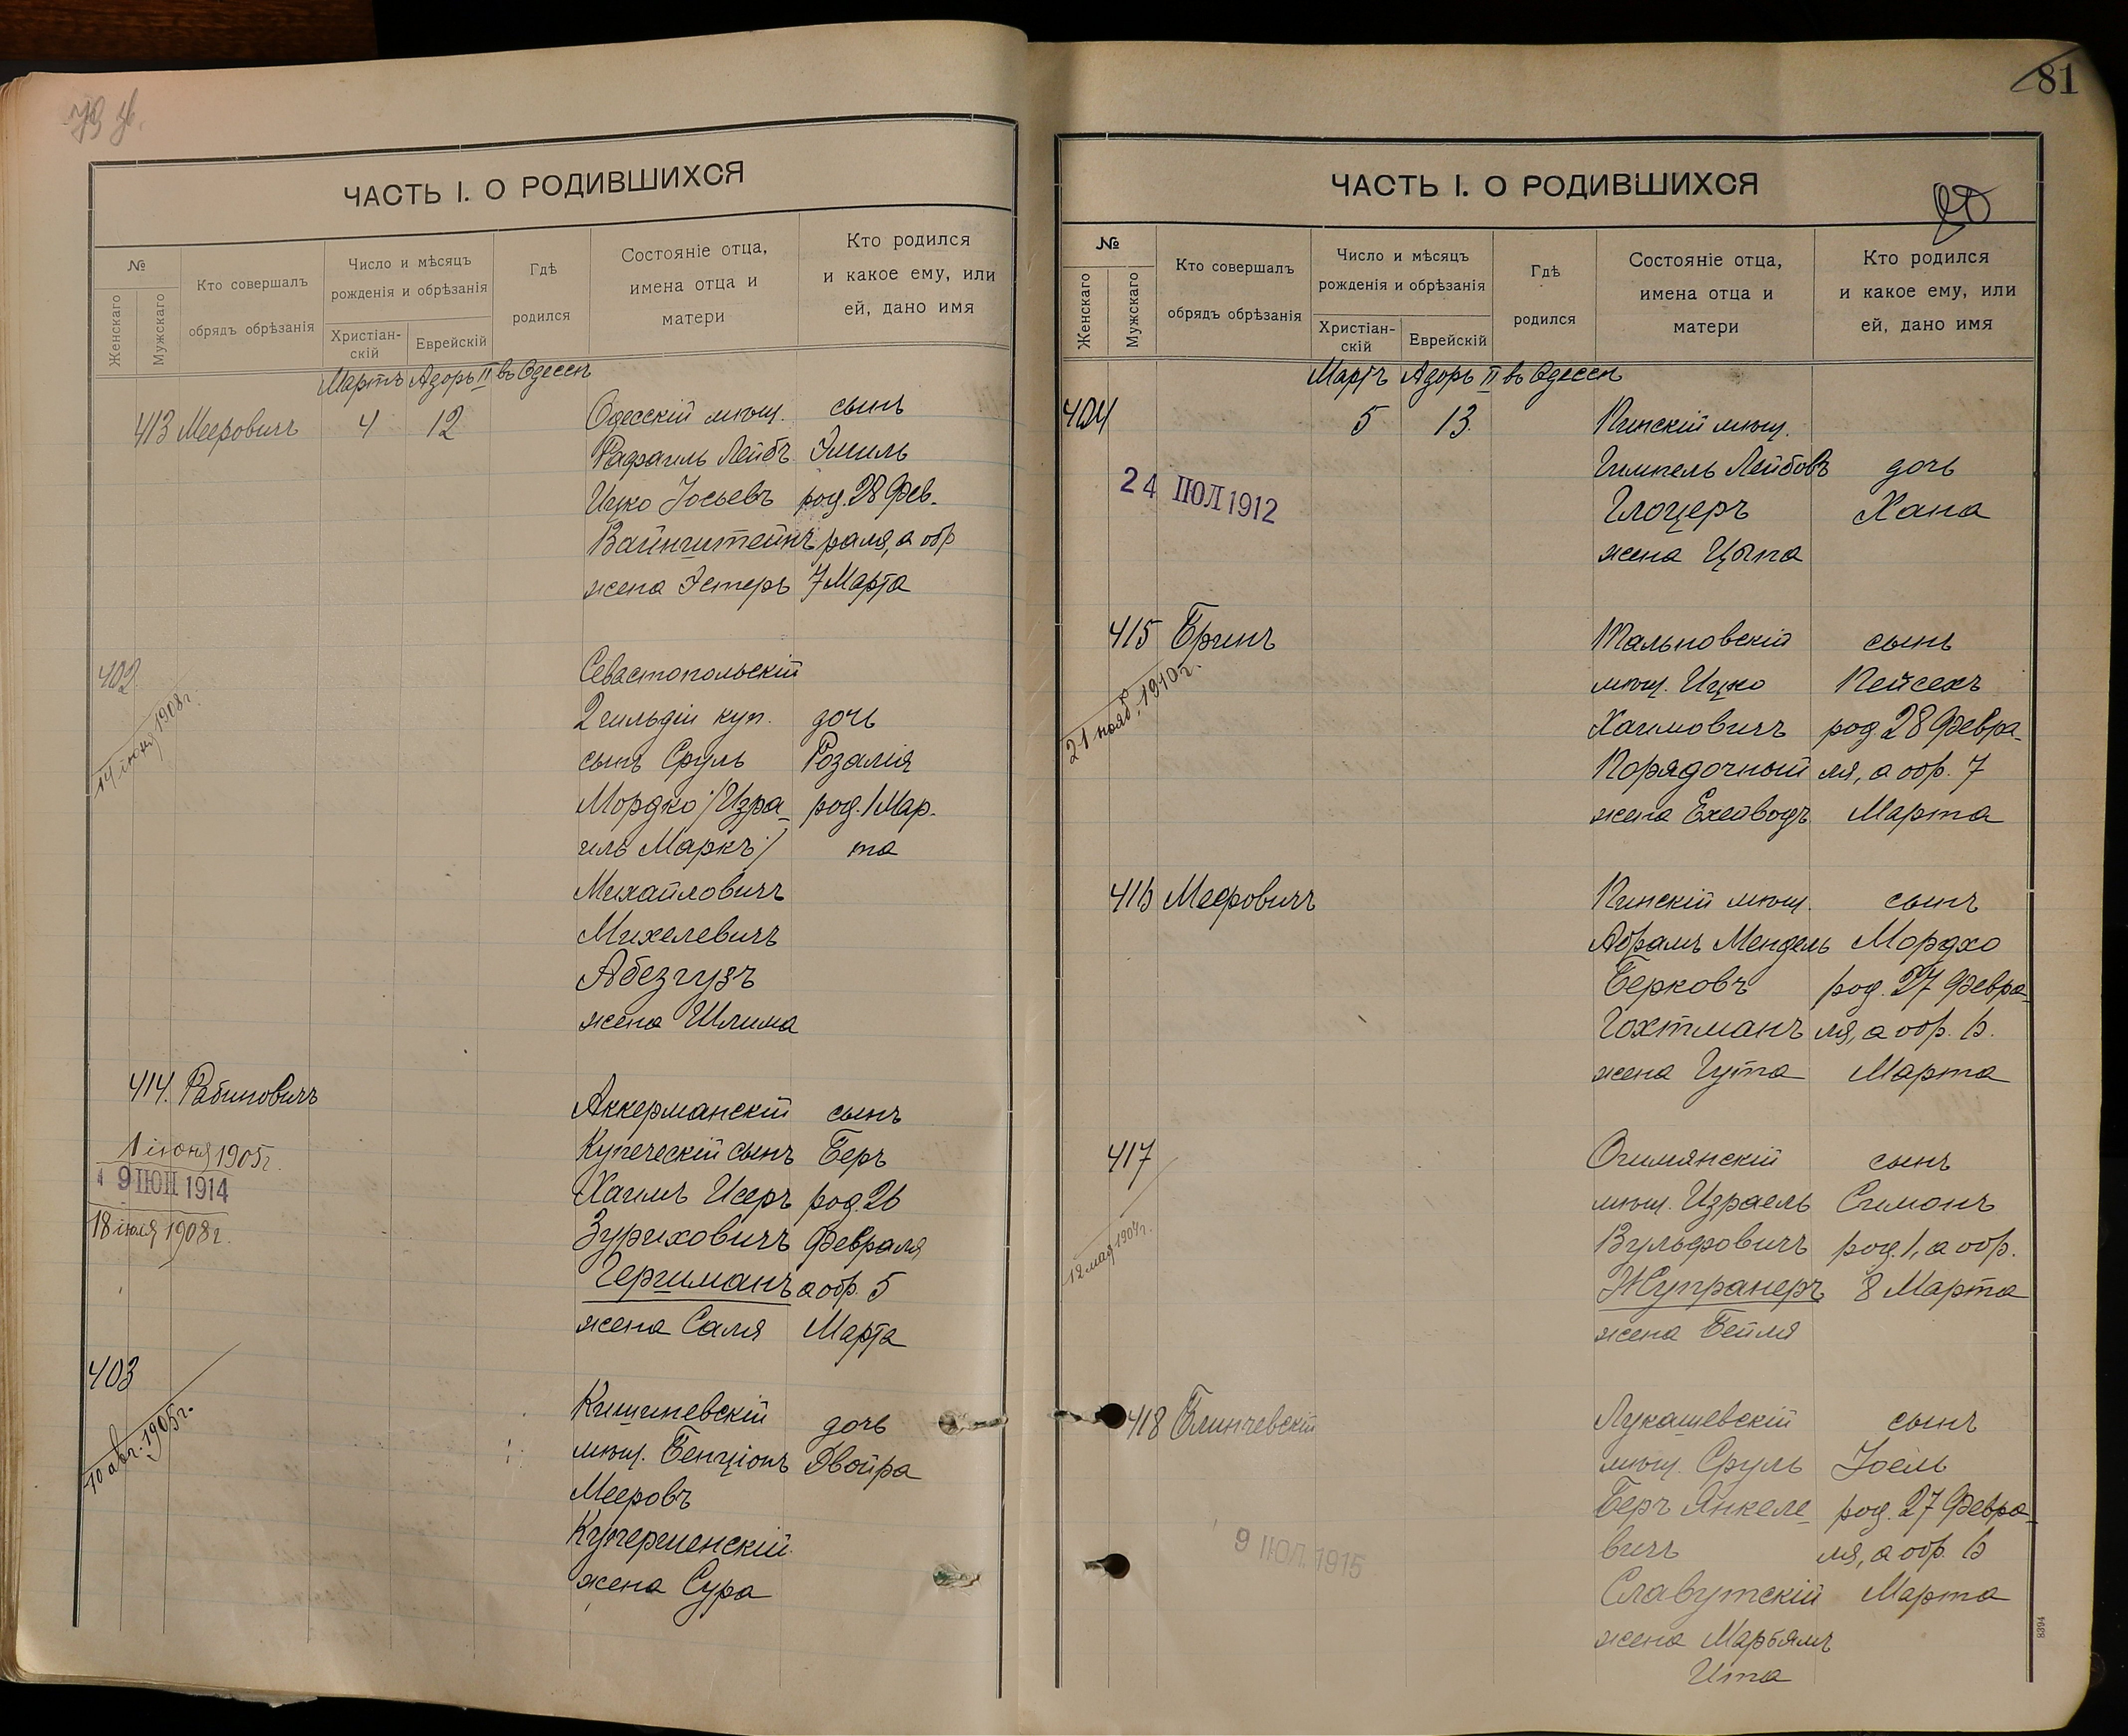 ЧАСТЬ I. О РОДИВШИХСЯ
№
Женскаго
Мужскаго
Кто совершалъ
обрядъ обрѣзанія
Число и мѣсяцъ
рожденія и обрѣзанія
Христіан-
скій
Еврейскій
Гдѣ
родился
Состояніе отца,
имена отца и
матери
Кто родился
и какое ему, или
ей, дано имя
Мартъ Адоръ II въ Одессѣ
413 Мееровичъ 4 12 Одесскій мѣщ. сынъ
Рафаилъ Лейбъ Эмиль
Ицко Іосьевъ род. 28 Фев-
Вайнштейнъ раля, а обр
жена Эстеръ 7 Марта
402
14 іюня 1908 г.
Севастопольскій
2 гильдіи куп. дочь
сынъ Сруль Розалія
Мордко /Изра- род. 1 Мар-
иль Маркъ/ та
Михайловичъ
Михелевичъ
Абезгузъ
жена Шлима
414. Рабиновичъ
1 іюня 1905 г.
9 ІЮН 1914
18 іюля 1908 г.
Аккерманскій сынъ
Купеческій сынъ Беръ
Хаимъ Исеръ род. 26
Зуриховичъ Февраля
Гершманъ а обр. 5
жена Саля Марта
403
10 авг. 1905 г.
Кишиневскій дочь
мѣщ. Бенціонъ Двойра
Мееровъ
Купершенскій
жена Сура
81
ЧАСТЬ I. О РОДИВШИХСЯ
80
№
Женскаго
Мужскаго
Кто совершалъ
обрядъ обрѣзанія
Число и мѣсяцъ
рожденія и обрѣзанія
Христіан-
скій
Еврейскій
Гдѣ
родился
Состояніе отца,
имена отца и
матери
Кто родился
и какое ему, или
ей, дано имя
Мартъ Адоръ II въ Одессѣ
404 5 13 Пинскій мѣщ.
24 ІЮЛ 1912
Гимпель Лейбовъ дочь
Глоцеръ Хана
жена Цыпа
415 Бринъ
21 нояб. 1910 г.
Тальновскій сынъ
мѣщ. Ицко Пейсехъ
Хаимовичъ род 28 Февра-
Порядочный ля, а обр. 7
жена Ехевводъ Марта
416 Мееровичъ Пинскій мѣщ. сынъ
Абрамъ Мендель Мордхо
Берковъ род. 27 Февра-
Гохтманъ ля, а обр. 6.
жена Гута Марта
417
12 мая 1904 г.
Огимянскій сынъ
мѣщ. Израель Симонъ
Вульфовичъ род. 1, а обр.
Жупранеръ 8 Марта
жена Бейля
418 Блинчевскій Лукашевскій сынъ
мѣщ. Сруль Іоель
Беръ Янкеле- род. 27 Февра-
вичъ ля, а обр. 6
9 ІЮЛ 1915
Славутскій Марта
жена Марьямъ
Ита
8394